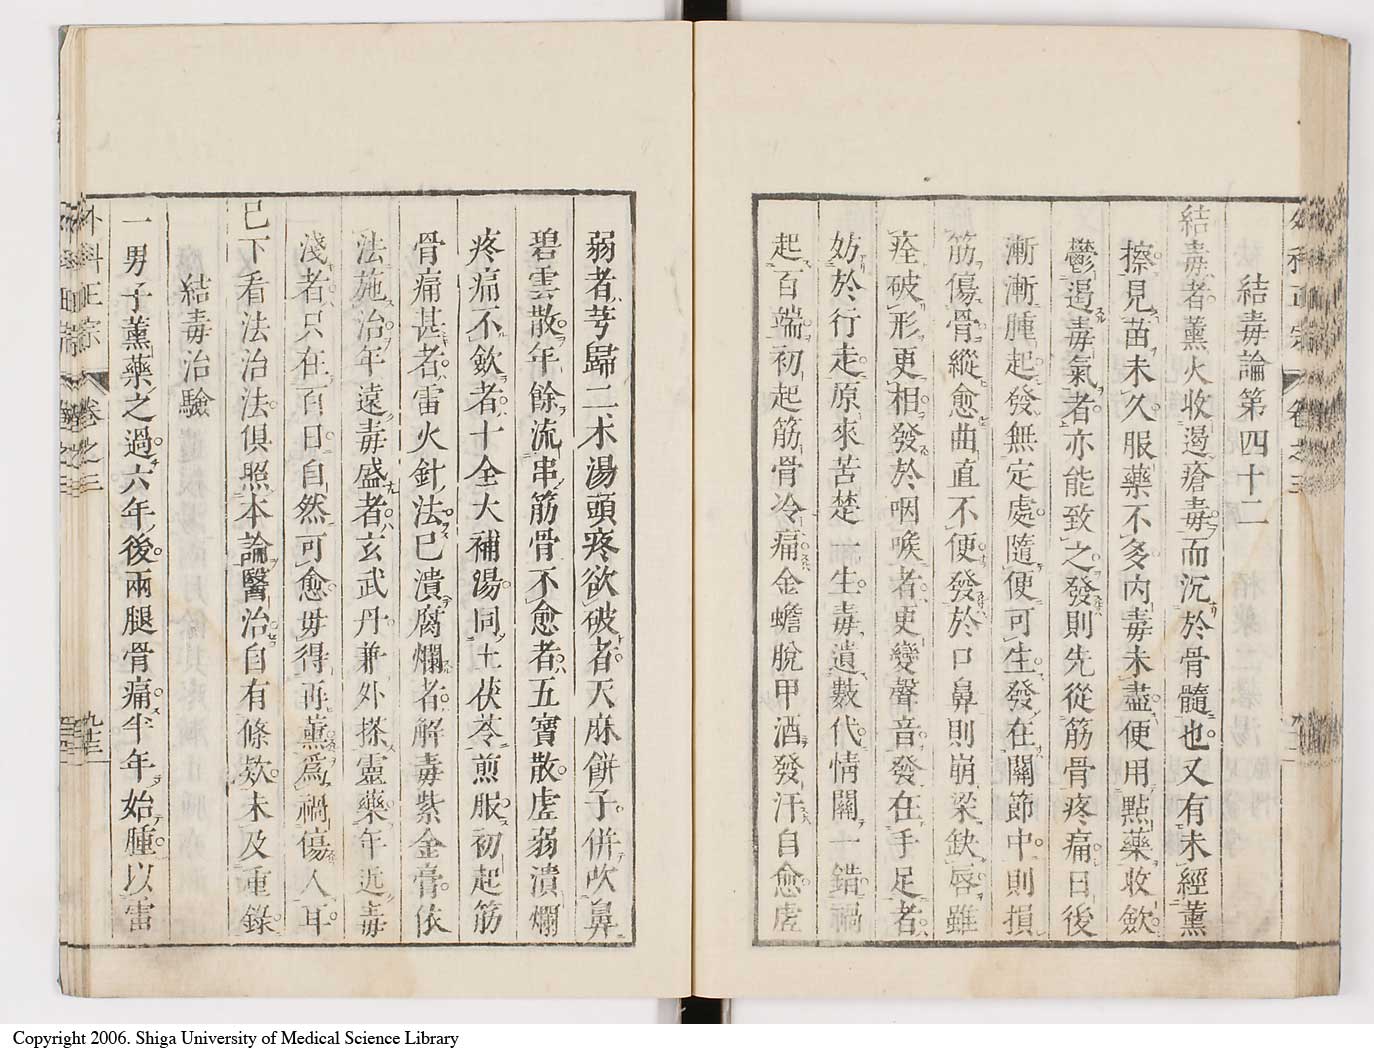 結毒論第四十二
結毒者薰火收遏瘡毒而沉於骨髓也又有未經薰
擦見苗未久服藥不多內毒未盡便用點藥收歛
鬱遏毒氣者亦能致之發則先從筋骨疼痛日後
漸漸腫起發無定處隨便可生發在關節中則損
筋傷骨縱愈曲直不便發於口鼻則崩梁缺唇雖
痊破形更相發於咽喉者更變聲音發在手足者
妨於行走原來苦楚一生毒遺數代情關一錯禍
起百端初起筋骨冷痛金蟾脫甲酒發汗自愈虛
弱者芎歸二朮湯頭疼欲破者天麻餅子併吹鼻
碧雲散年餘流串筋骨不愈者五寶散虛弱潰爛
疼痛不歛者十全大補湯同土茯苓煎服初起筋
骨痛甚者雷火針法已潰腐爛者解毒紫金膏依
法施治年遠毒盛者玄武丹兼外搽靈藥年近毒
淺者只在百日自然可愈毋得再薰爲禍傷人耳
已下看法治法俱照本論醫治自有條欵未及重錄
結毒治驗
一男子薰藥之過六年後兩腿骨痛半年始腫以雷
外科正宗
卷之三
九十三
Copyright 2006. Shiga University of Medical Science Library